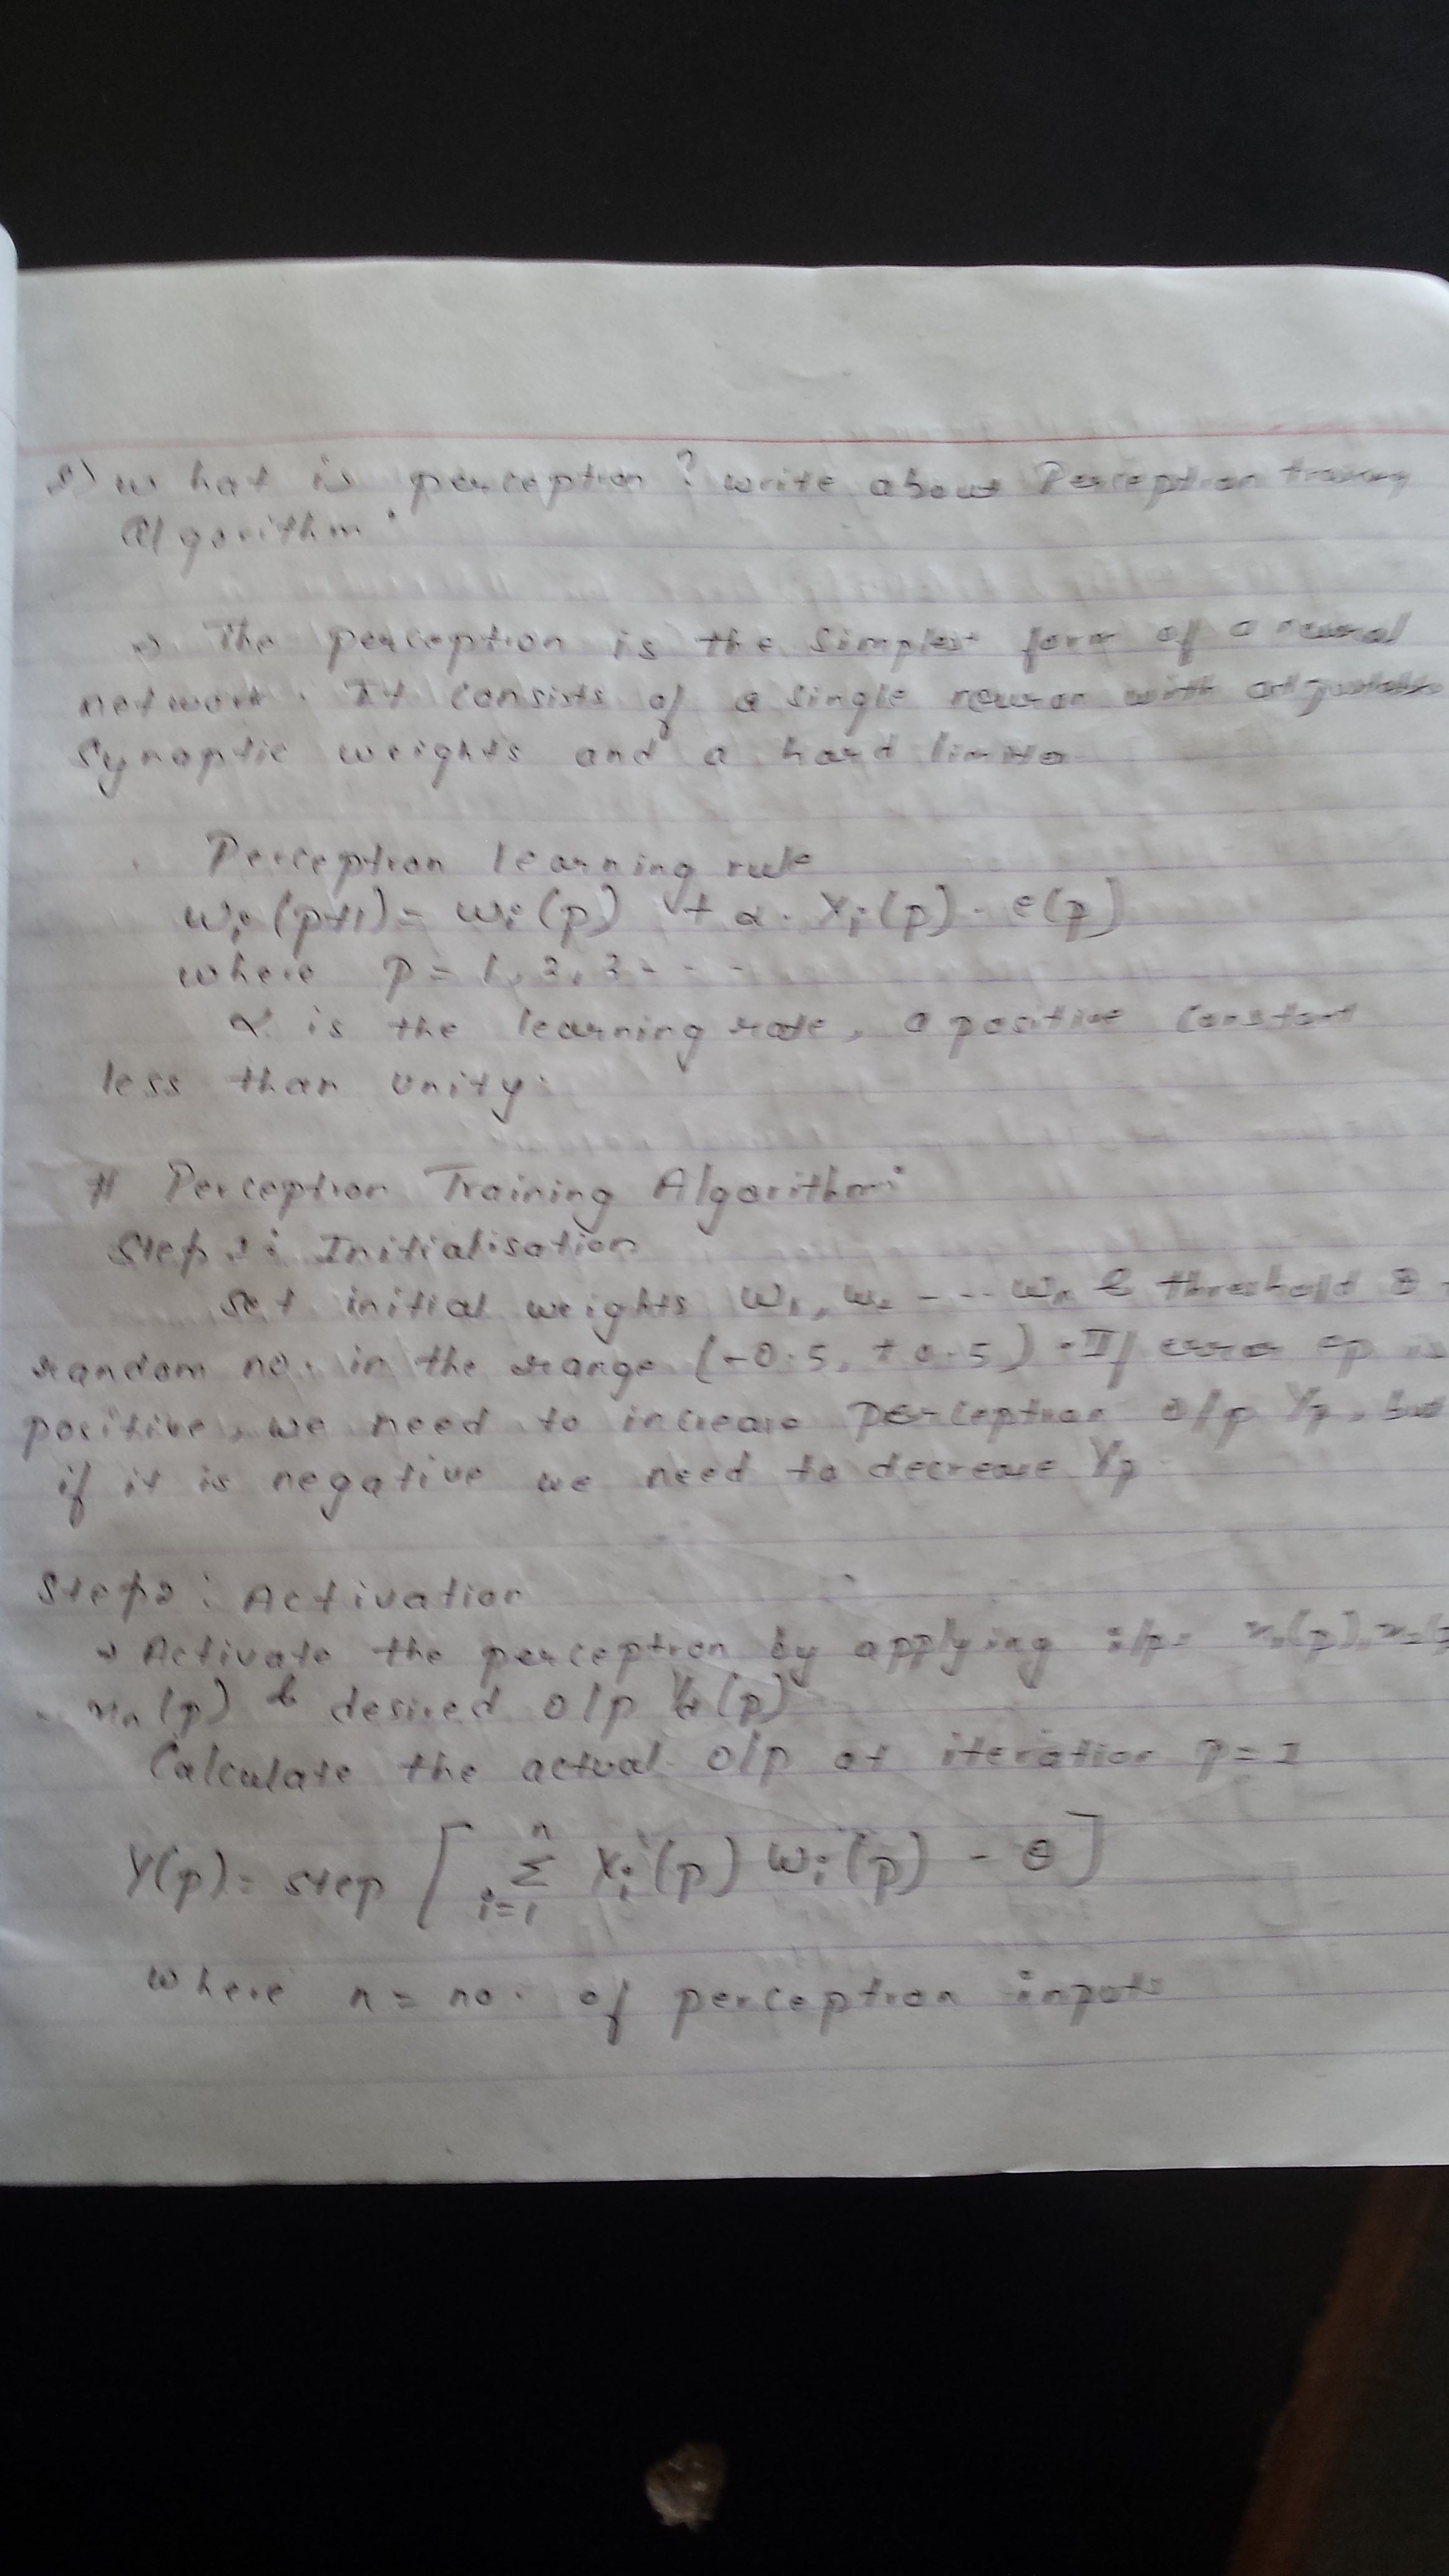 what is perceptron ? write about Perceptron training
Algorithm.
→ The perceptron is the simplest form of a neural
network. It consists of a single neuron with adjustable
synaptic weights and a hard limiter
Perceptron learning rule
wi(p+1) = wi(p) + α. Xi(p). e(p)
where p = 1, 2, 3 - - -
α is the learning rate, a positive constant
less than unity.
# Perceptron Training Algorithm:
Step 1: Initialisation
Set initial weights W1, W2 - - - Wn & threshold θ
random no. in the range (-0.5, +0.5). If error ep is
positive, we need to increase perceptron o/p Yp, but
if it is negative we need to decrease Yp
Step 2: Activation
→ Activate the perceptron by applying i/p x1(p), x2(p
xn(p) & desired o/p Yd(p)
Calculate the actual o/p at iteration p = 1
Y(p) = step [ n Σ i=1 Xi(p) Wi(p) - θ ]
where n = no. of perceptron inputs